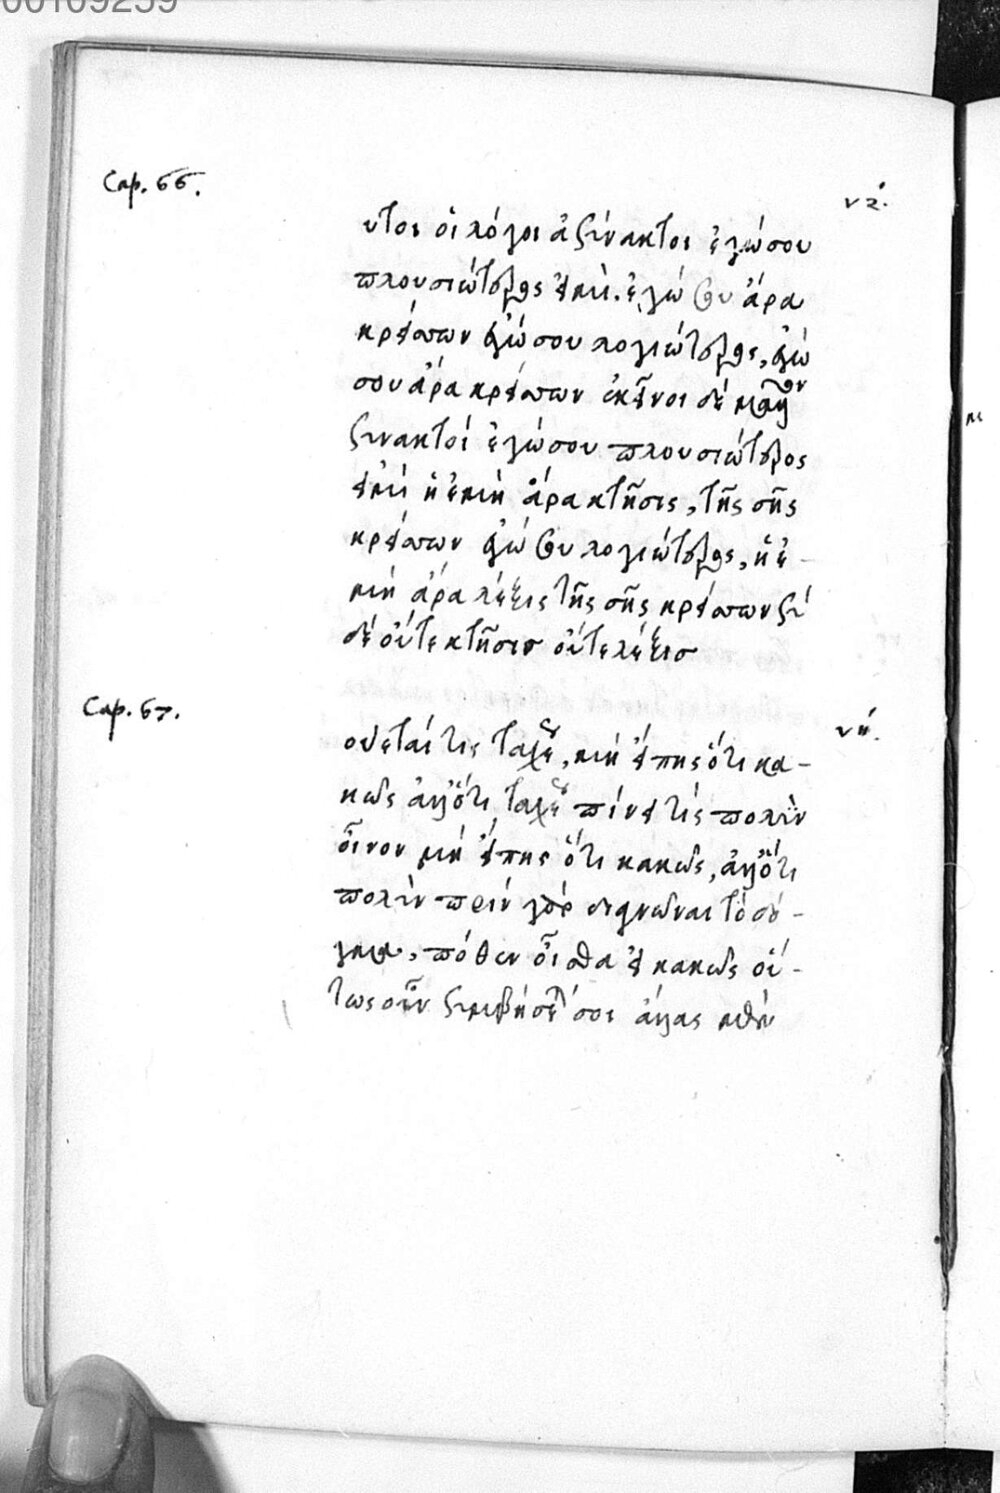 00109259
Cap. 66.
νζ.
υτοι οἱ λόγοι ἀσύνακτοι ἐγώ σου
πλουσιώτερος εἰμὶ. ἐγώ σου ἄρα
κρείσσων ἐγώ σου λογιώτερος, ἐγώ
σου ἄρα κρείσσων ἐκεῖνοι δέ μᾶλλον
συνακτοί ἐγώ σου πλουσιώτερος
εἰμί ἡ ἐμὴ ἄρα κτῆσις, τῆς σῆς
κρείσσων ἐγώ σου λογιώτερος, ἡ ἐ-
μή ἄρα λέξις τῆς σῆς κρείσσων σύ
δέ οὔτε κτῆσισ οὔτε λέξισ
Cap. 67.
νή.
ούεται τὶς ταχέως, μή εἴπης ὅτι κα-
κῶς ἀλλ' ὅτι ταχέως πίνει τίς πολὺν
οἶνον μή εἴπης ὅτι κακῶς, ἀλλ' ὅτι
πολὺν πρίν γάρ διαγνῶναι τό δό-
γμα, πόθεν οἶσθα εἰ κακῶς οὕ-
τως οὖν συμβήσεταί σοι ἄλλας μὲν